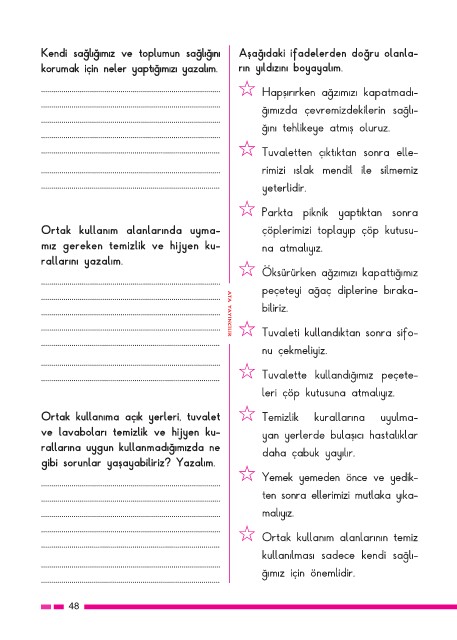 Kendi sağlığımız ve toplumun sağlığını
korumak için neler yaptığımızı yazalım.
Ortak kullanım alanlarında uyma-
mız gereken temizlik ve hijyen ku-
rallarını yazalım.
Ortak kullanıma açık yerleri, tuvalet
ve lavaboları temizlik ve hijyen ku-
rallarına uygun kullanmadığımızda ne
gibi sorunlar yaşayabiliriz? Yazalım.
ATA YAYINCILIK
Aşağıdaki ifadelerden doğru olanla-
rın yıldızını boyayalım.
Hapşırırken ağzımızı kapatmadı-
ğımızda çevremizdekilerin sağlı-
ğını tehlikeye atmış oluruz.
Tuvaletten çıktıktan sonra elle-
rimizi ıslak mendil ile silmemiz
yeterlidir.
Parkta piknik yaptıktan sonra
çöplerimizi toplayıp çöp kutusu-
na atmalıyız.
Öksürürken ağzımızı kapattığımız
peçeteyi ağaç diplerine bıraka-
biliriz.
Tuvaleti kullandıktan sonra sifo-
nu çekmeliyiz.
Tuvalette kullandığımız peçete-
leri çöp kutusuna atmalıyız.
Temizlik kurallarına uyulma-
yan yerlerde bulaşıcı hastalıklar
daha çabuk yayılır.
Yemek yemeden önce ve yedik-
ten sonra ellerimizi mutlaka yıka-
malıyız.
Ortak kullanım alanlarının temiz
kullanılması sadece kendi sağlı-
ğımız için önemlidir.
48